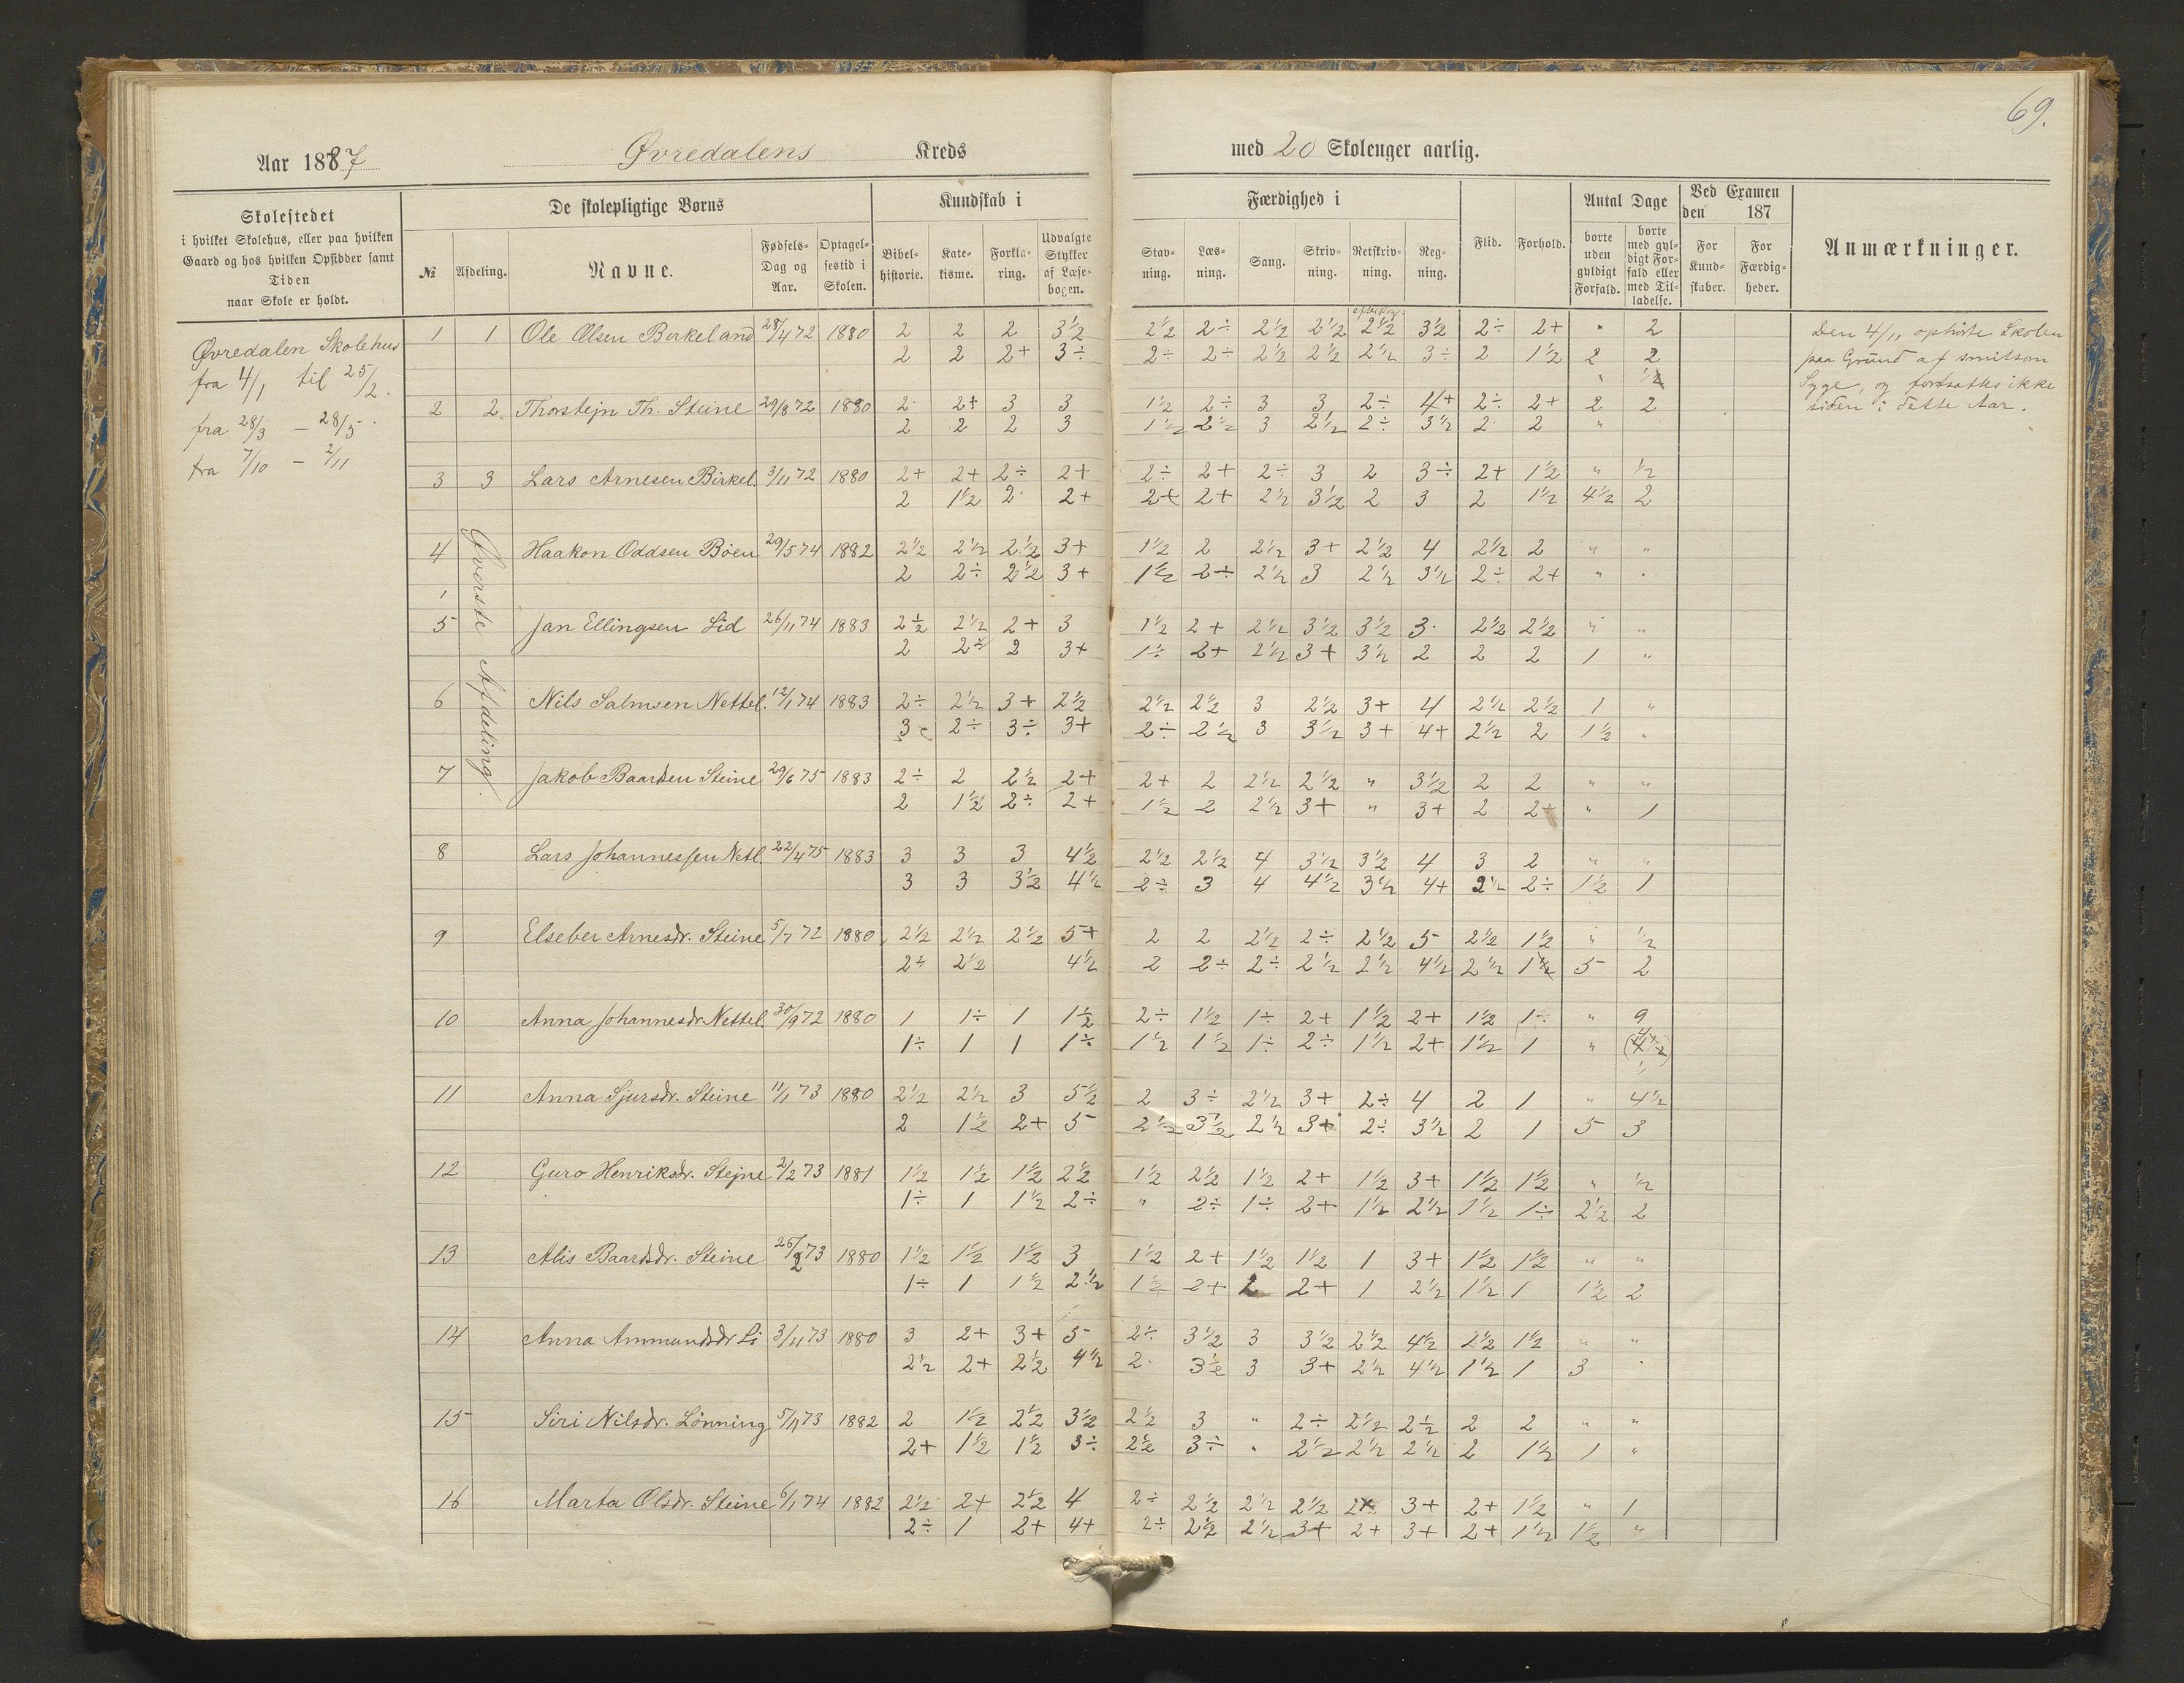 69.
Aar 1887 Øvredalens Kreds med 20 Skoleuger aarlig.
Skolestedet
i hvilket Skolehus, eller paa hvilken
Gaard og hos hvilken Opsidder samt
Tiden
naar Skole er holdt.
De skolepligtige Børns
№ Afdeling. Navne. Fødsels-Dag og Aar. Optagelsestid i Skolen.
Kundskab i
Bibelhistorie. Katekisme. Forklaring. Udvalgte Stykker af Læsebogen.
Færdighed i
Stavning. Læsning. Sang. Skrivning. Retskrivning. Regning.
Flid. Forhold.
Antal Dage
borte uden gyldigt Forfald. borte med gyldigt Forfald eller med Tilladelse.
Ved Examen den 187
For Kundskaber. For Færdigheder.
Anmærkninger.
Øvredalen Skolehus
fra 4/1 til 25/2.
fra 28/3 – 28/5
fra 7/10 – 2/11
Øverste Afdeling.
1 1 Ole Olsen Birkeland 28/4 72 1880 2 2 2 3½ 2½ 2÷ 2½ 2½ 2½ 3½ 2÷ 2+ " 2
2 2 2+ 3÷ 2÷ 2÷ 2½ 2½ 2½ 3÷ 2 1½ 2 2
2 2 Thorstejn Th. Steine 29/8 72 1880 2 2÷ 3 3 1½ 2÷ 3 3 2÷ 4+ 2÷ 2+ 2 2
2 2 2 3 1½ 2½ 3 2½ 2÷ 3½ 2 2 "
3 3 Lars Arnesen Birkel. 3/11 72 1880 2+ 2+ 2÷ 2+ 2÷ 2+ 2÷ 3 2 3÷ 2+ 1½ " ½
2 1½ 2 2+ 2+ 2+ 2½ 3½ 2 3 2 1½ 4½ 2
4 Haakon Oddsen Böen 29/5 74 1882 2½ 2½ 2½ 3+ 1½ 2 2½ 3+ 2½ 4 2½ 2 " "
2 2÷ 2½ 3+ 1½ 2÷ 2½ 3 2½ 3½ 2÷ 2+ " "
5 Jan Ellingsen Lid 26/11 74 1883 2½ 2½ 2+ 3 1½ 2+ 2½ 3½ 3½ 3 2½ 2½ " "
2 2÷ 2 3+ 1÷ 2+ 2½ 3+ 3½ 2 2 2 1 "
6 Nils Salmsen Nettel. 12/1 74 1883 2÷ 2½ 3+ 2½ 2½ 2½ 3 2½ 3+ 4 2½ 2½ 1 "
3 2÷ 3÷ 3+ 2÷ 2½ 3 3½ 3+ 4+ 2½ 2 1½ "
7 Jakob Baardsen Steine 29/6 75 1883 2÷ 2 2½ 2+ 2+ 2 2½ 2½ " 3½ 2 2 " "
2 1½ 2÷ 2+ 1½ 2 2½ 3+ " 3+ 2 2+ " 1
8 Lars Johannessen Netl. 22/4 75 1883 3 3 3 4½ 2½ 2½ 4 3½ 3½ 4 3 2 " "
3 3 3½ 4½ 2÷ 3 4 4½ 3½ 4+ 2½ 2÷ 1½ 1
9 Elseber Arnesdr. Steine 5/7 72 1880 2½ 2½ 2½ 5+ 2 2 2½ 2÷ 2½ 5 2½ 1½ " ½
2÷ 2½ 4½ 2 2÷ 2÷ 2½ 2½ 4½ 2½ 1½ 5 2
10 Anna Johannesdr. Nettel. 30/9 72 1880 1 1÷ 1 1½ 2÷ 1½ 1÷ 2+ 1½ 2+ 1½ 1÷ " 9
1÷ 1 1 1÷ 1½ 1½ 1÷ 2÷ 1½ 2+ 1½ 1 "
11 Anna Sjursdr. Steine 11/1 73 1880 2½ 2½ 3 5½ 2 3÷ 2½ 3+ 2÷ 4 2 1 " 4½
2 1½ 2+ 5 2½ 3½ 2½ 3+ 2÷ 3½ 2 1 5 3
12 Guro Henriksdr. Stejne 2/2 73 1881 1½ 1½ 1½ 2½ 1½ 2½ 1½ 2+ 1½ 3+ 1½ 1½ " ½
1÷ 1 1½ 2÷ " 2÷ 1÷ 2+ 1½ 2½ 1½ 1÷ 2½ 2
13 Alis Baardsdr. Steine 26/2 73 1880 1½ 1½ 1½ 3 1½ 2+ 1½ 1½ 1 3+ 1½ 1½ " "
1÷ 1 1½ 2½ 1½ 2+ 2 2+ 1 2½ 1½ 1 1½ 2
14 Anna Ammundsdr Li 3/11 73 1880 3 2+ 3+ 5 2÷ 3½ 3 3½ 2½ 4½ 2½ 1½ " "
2½ 2+ 2½ 4½ 2 3½ 3 3+ 2½ 4½ 1½ 1 3
15 Siri Nilsdr. Lönning 5/11 73 1882 2 1½ 2½ 3½ 2½ 3 " 2÷ 2½ 2½ 2 2 " "
2+ 1½ 1½ 3÷ 2½ 3÷ " 2½ 2½ 2½ 2 1½ 1 "
16 Marta Olsdr. Steine 6/1 74 1882 2½ 2+ 2½ 4 2÷ 2½ 2½ 2½ 2 3+ 2+ 1½ " 1
2÷ 1 2+ 4+ 2÷ 2½ 2½ 3+ 2+ 3+ 2+ 1½ 1½ "
Den 4/11 ophörte Skolen
paa Grund af smitsom
Syge, og fortsattes ikke
siden i dette Aar.